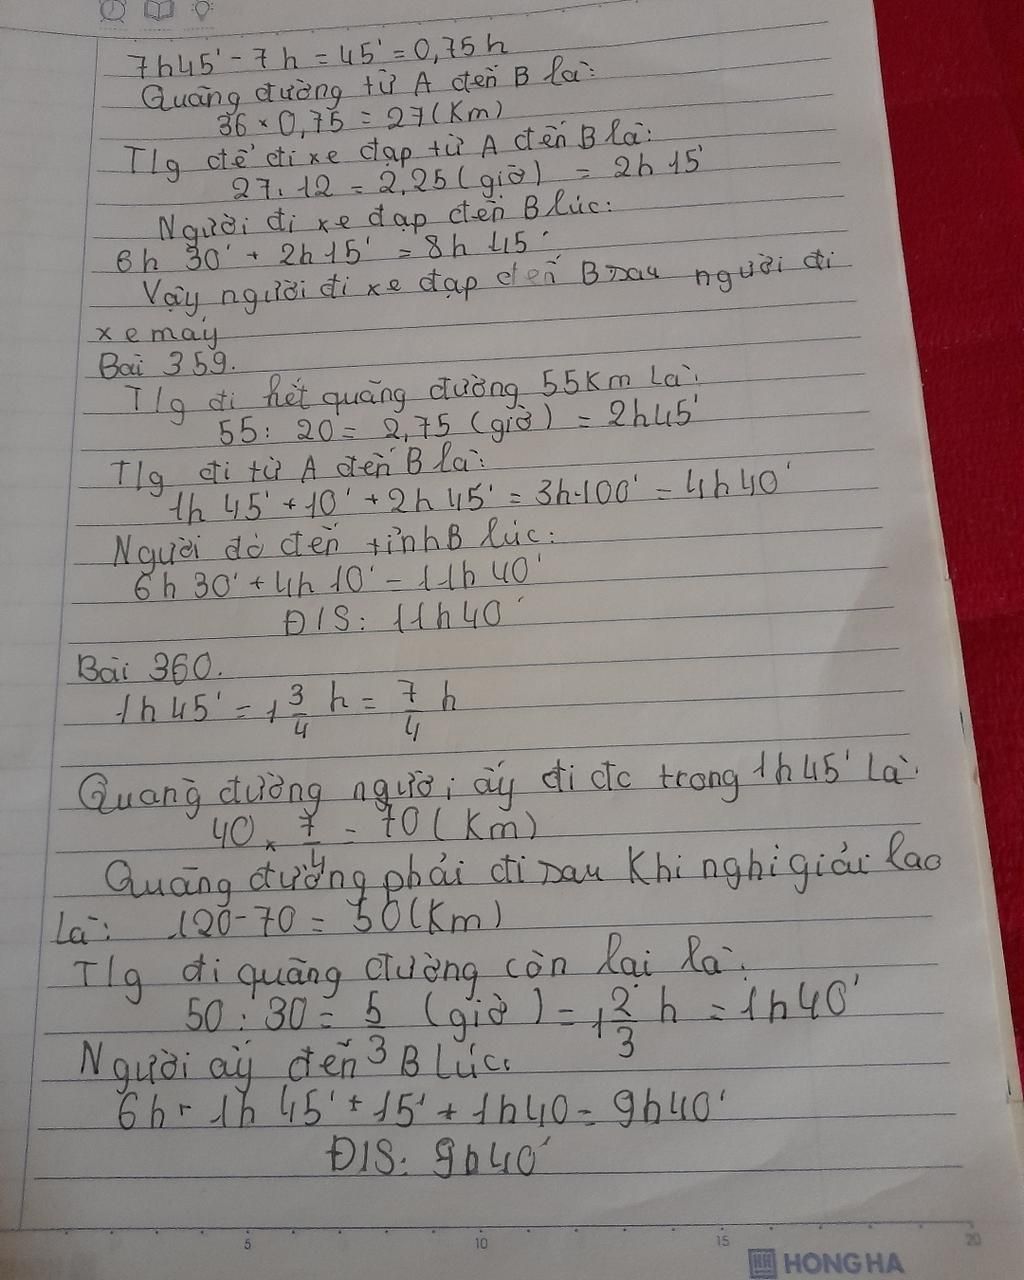 7h45' - 7h = 45' = 0,75h
Quãng đường từ A đến B là:
36 × 0,75 = 27 (Km)
T/g để đi xe đạp từ A đến B là:
27 : 12 = 2,25 (giờ) = 2h 15'
Người đi xe đạp đến B lúc:
6h 30' + 2h 15' = 8h 45'
Vậy người đi xe đạp đến B sau người đi
xe máy
Bài 359.
T/g đi hết quãng đường 55Km là:
55 : 20 = 2,75 (giờ) = 2h45'
T/g đi từ A đến B là:
1h 45' + 10' + 2h 45' = 3h 100' = 4h40'
Người đó đến tỉnh B lúc:
6h 30' + 4h 10' = 11h 40'
Đ/S: 11h40'
Bài 360.
1h45' = 1 3/4 h = 7/4 h
Quãng đường người ấy đi đc trong 1h45' là:
40 × 7/4 = 70 (Km)
Quãng đường phải đi sau khi nghỉ giải lao
là: 120 - 70 = 50 (Km)
T/g đi quãng đường còn lại là:
50 : 30 = 5/3 (giờ) = 1 2/3 h = 1h40'
Người ấy đến B lúc:
6h + 1h 45' + 15' + 1h40 = 9h40'
Đ/S: 9h40'
5 10 15 20
HONG HA